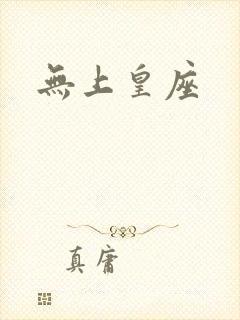 無上皇座
真庸